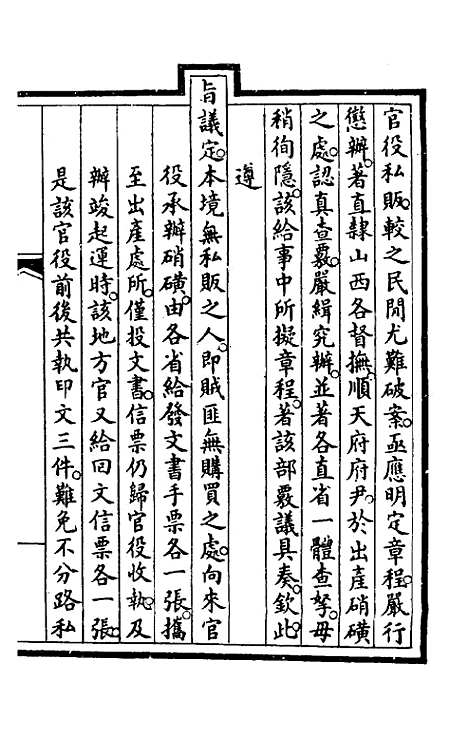 官役私販。較之民間尤難破案。亟應明定章程。嚴行
懲辦。著直隸山西各督撫。順天府府尹。於出產硝磺
之處。認真查覈。嚴緝究辦。並著各直省一體查拏。毋
稍徇隱。該給事中所擬章程。著該部覈議具奏。欽此。
遵
旨議定。本境無私販之人。即賊匪無購買之處。向來官
役承辦硝磺。由各省給發文書手票各一張。攜
至出產處所。僅投文書。信票仍歸官役收執。及
辦竣起運時。該地方官又給回文信票各一張。
是該官役前後共執印文三件。難免不分路私